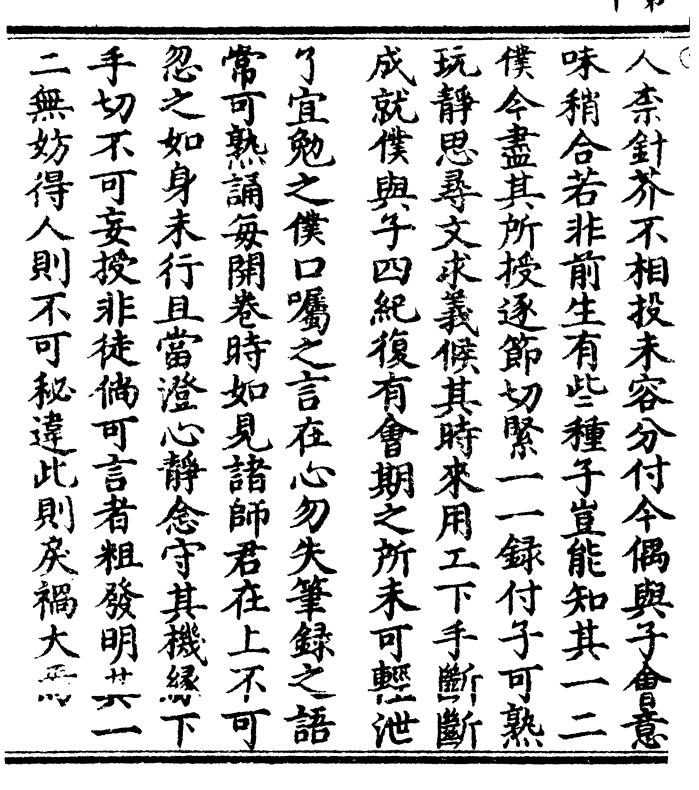 人柰針芥不相投未容分付今偶與子會意
味稍合若非前生有些種子豈能知其一二
僕今盡其所授逐節切緊一一録付子可熟
玩靜思尋文求義候其時來用工下手斷斷
成就僕與子四紀復有會期之所未可輕泄
了宜勉之僕口囑之言在心勿失筆録之語
常可熟誦每開卷時如見諸師君在上不可
忽之如身未行且當澄心靜念守其機縁下
手切不可妄授非徒倘可言者粗發明其一
二無妨得人則不可秘違此則戾禍大焉